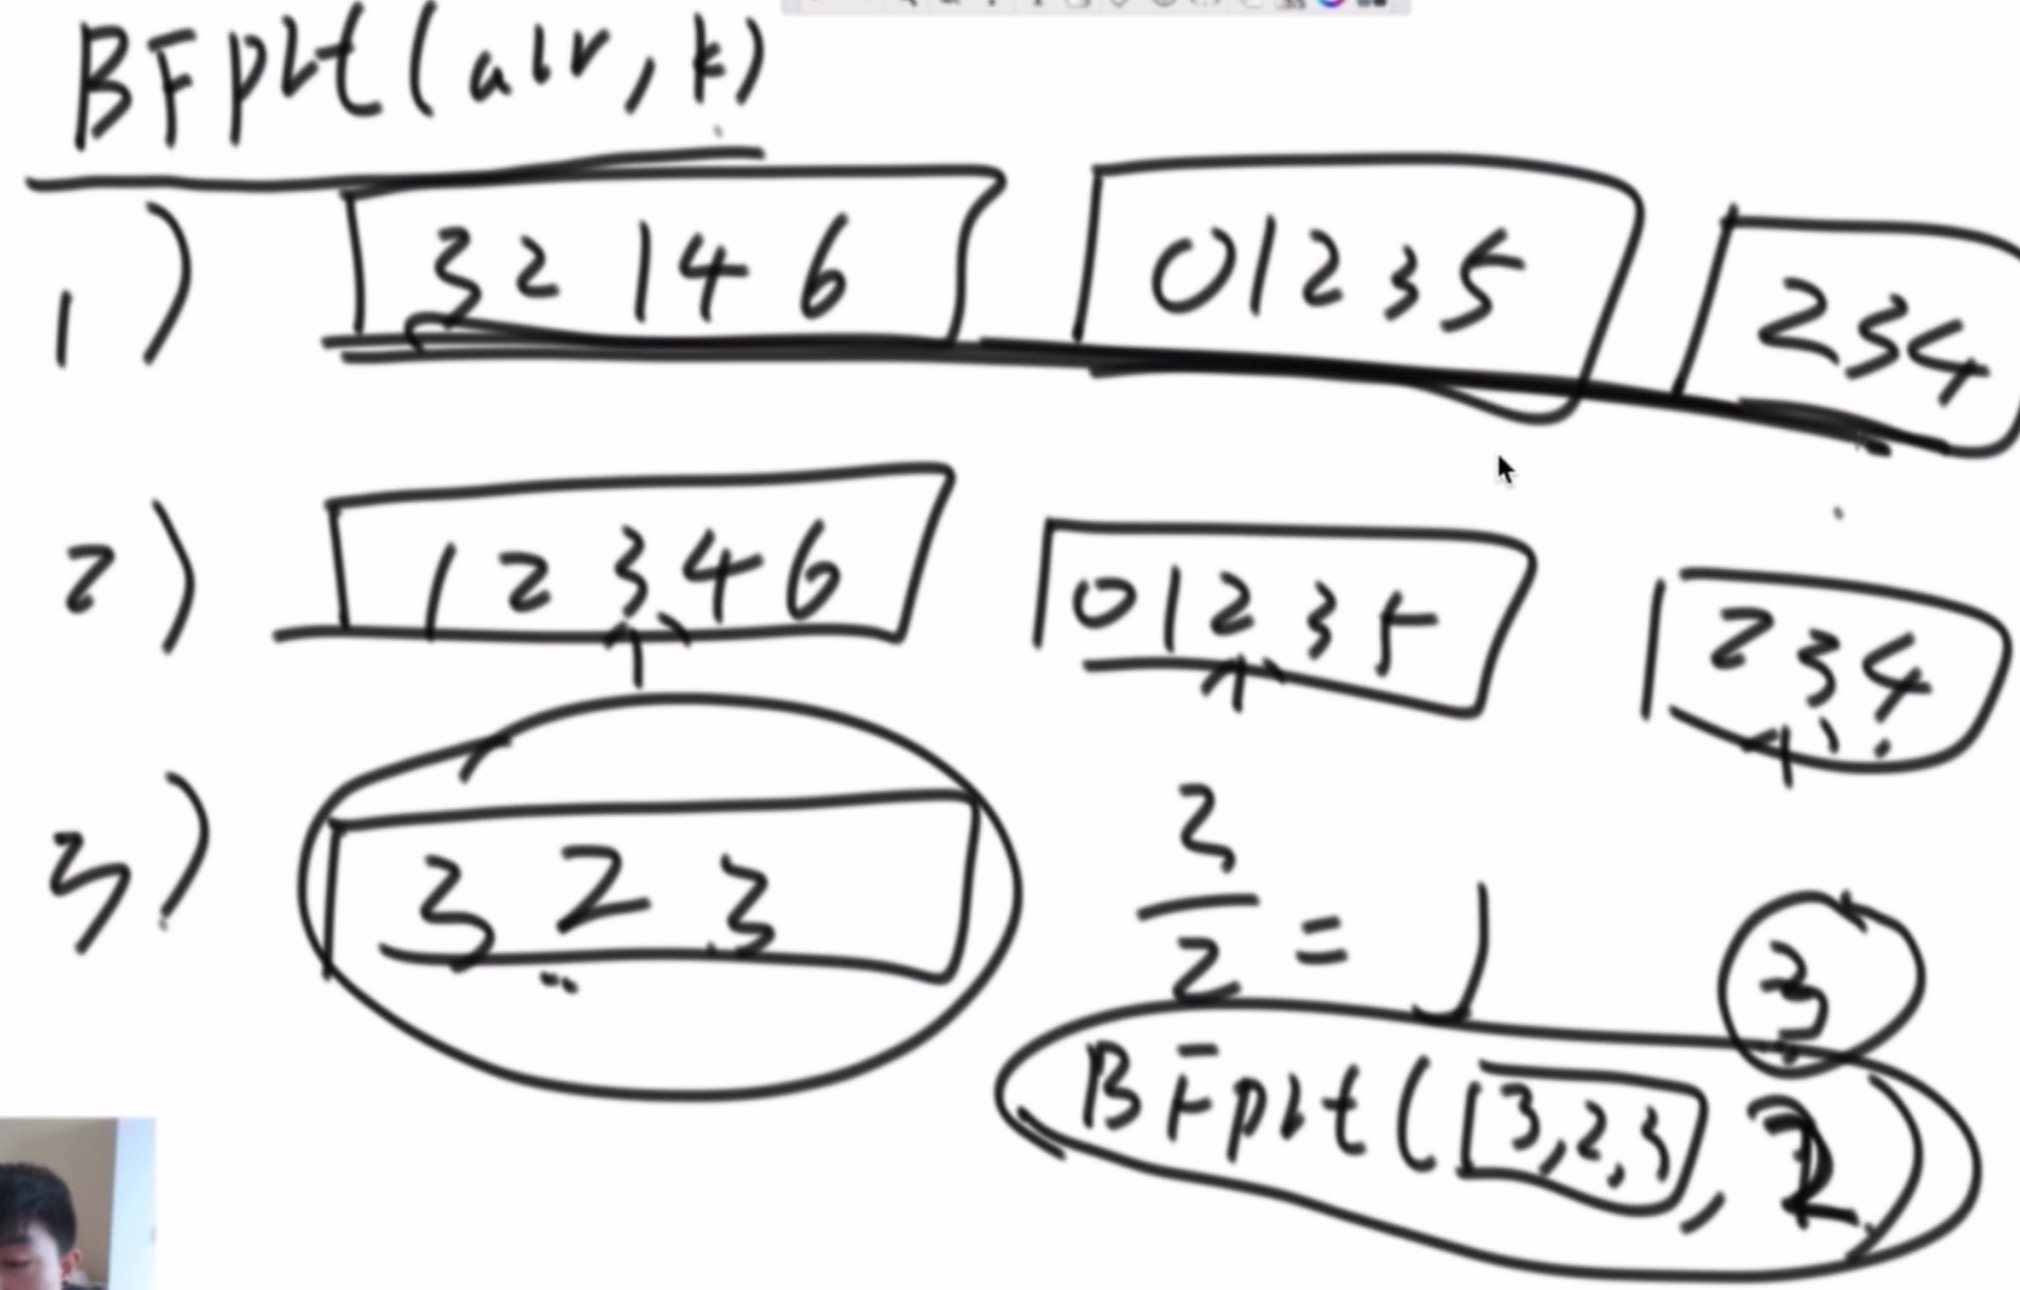 BFprt(arr, k)
1) 3 2 1 4 6 0 1 2 3 5 2 3 4
2) 1 2 3 4 6 0 1 2 3 5 2 3 4
3) 3 2 3
3/2 = 1
3
BFprt([3,2,3], 2)